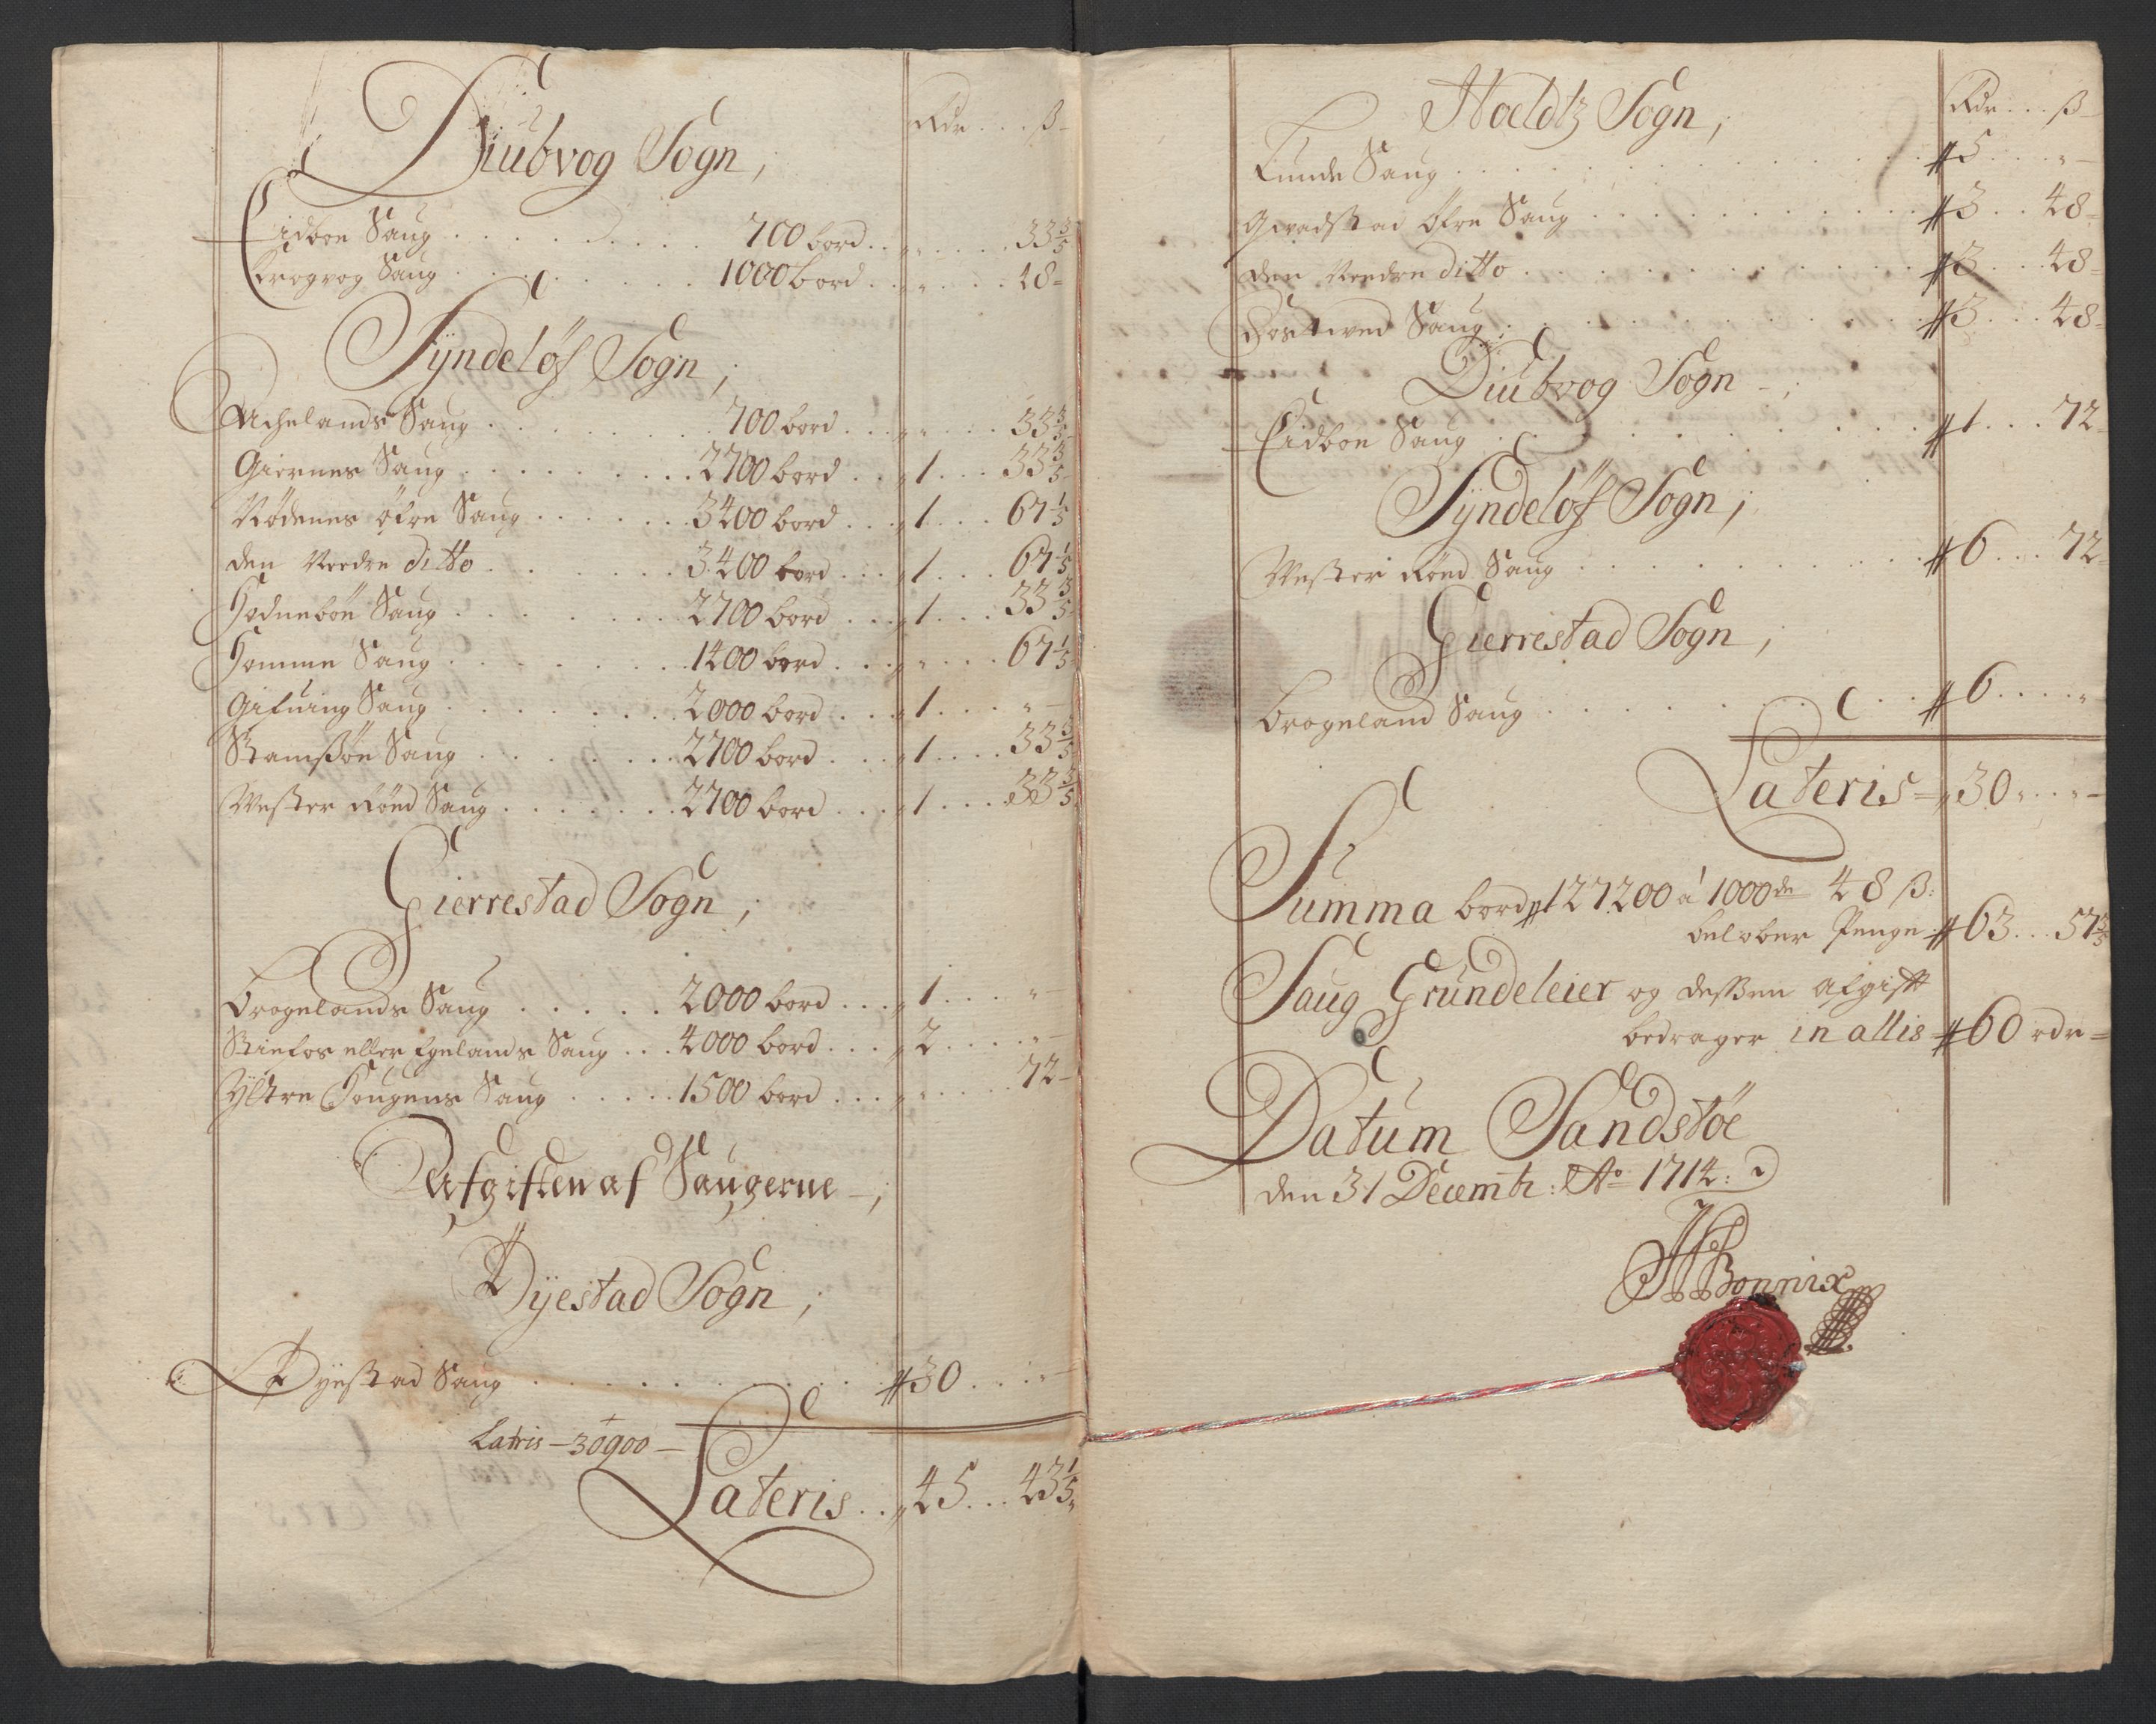 Rdr . . . ß
Diubvog Sogn,
Eidboe Saug . . . . 700 bord . . „ . . . 33 3/5
Krogvog Saug . . . . 1000 bord . . „ . . . 48
Syndeløf Sogn,
Achelands Saug . . . . 700 bord . . „ . . . 33 3/5
Giernes Saug . . . . 2700 bord . . „ 1 . . . 33 3/5
Rødenes øfre Saug . . . . 3400 bord . . „ 1 . . . 67 1/5
den Nedre ditto . . . . 3400 bord . . „ 1 . . . 67 1/5
Hodnebøe Saug . . . . 2700 bord . . „ 1 . . . 33 3/5
Homme Saug . . . . 1400 bord . . „ . . . 67 1/5
Gifuing Saug . . . . 2000 bord . . „ 1 . . . „
Stamsøe Saug . . . . 2700 bord . . „ 1 . . . 33 3/5
Wester Røed Saug . . . . 2700 bord . . „ 1 . . . 33 3/5
Gierrestad Sogn,
Brogelands Saug . . . . 2000 bord . . „ 1 . . . „
Stiefos eller Egelands Saug . . . 4000 bord . . „ 2 . . . „
Yttre Hougens Saug . . . . 1500 bord . . „ . . . 72
Afgiften af Saugerne,
Øyestad Sogn,
Øyestad Saug . . . . 30 . . . „
Latris - 30900 -
Lateris . . „ 45 . . . 43 1/5
Hoeldtz Sogn,
Rdr . . . ß
Lunde Saug . . . . 5 . . . „
Gieradstad Øfre Saug . . . . 3 . . . 48
den Nedre ditto . . . . 3 . . . 48
Fostwed Saug . . . . 3 . . . 48
Diubvog Sogn,
Eidboe Saug . . . . 1 . . . 72
Syndeløf Sogn,
Wester Røed Saug . . . . 6 . . . 72
Gierrestad Sogn,
Brogeland Saug . . . . 6 . . . „
Lateris = „ 30 „ . . . „
Summa bord 127200 á 1000de 48 ß:
beløber Penge 63 . . . 57 3/5
Saug Grundeleier og dessen afgift
bedrager in allis 60 rdr =
Datum Sandstøe
den 31 Decembr: Ao 1714:
Bonnix